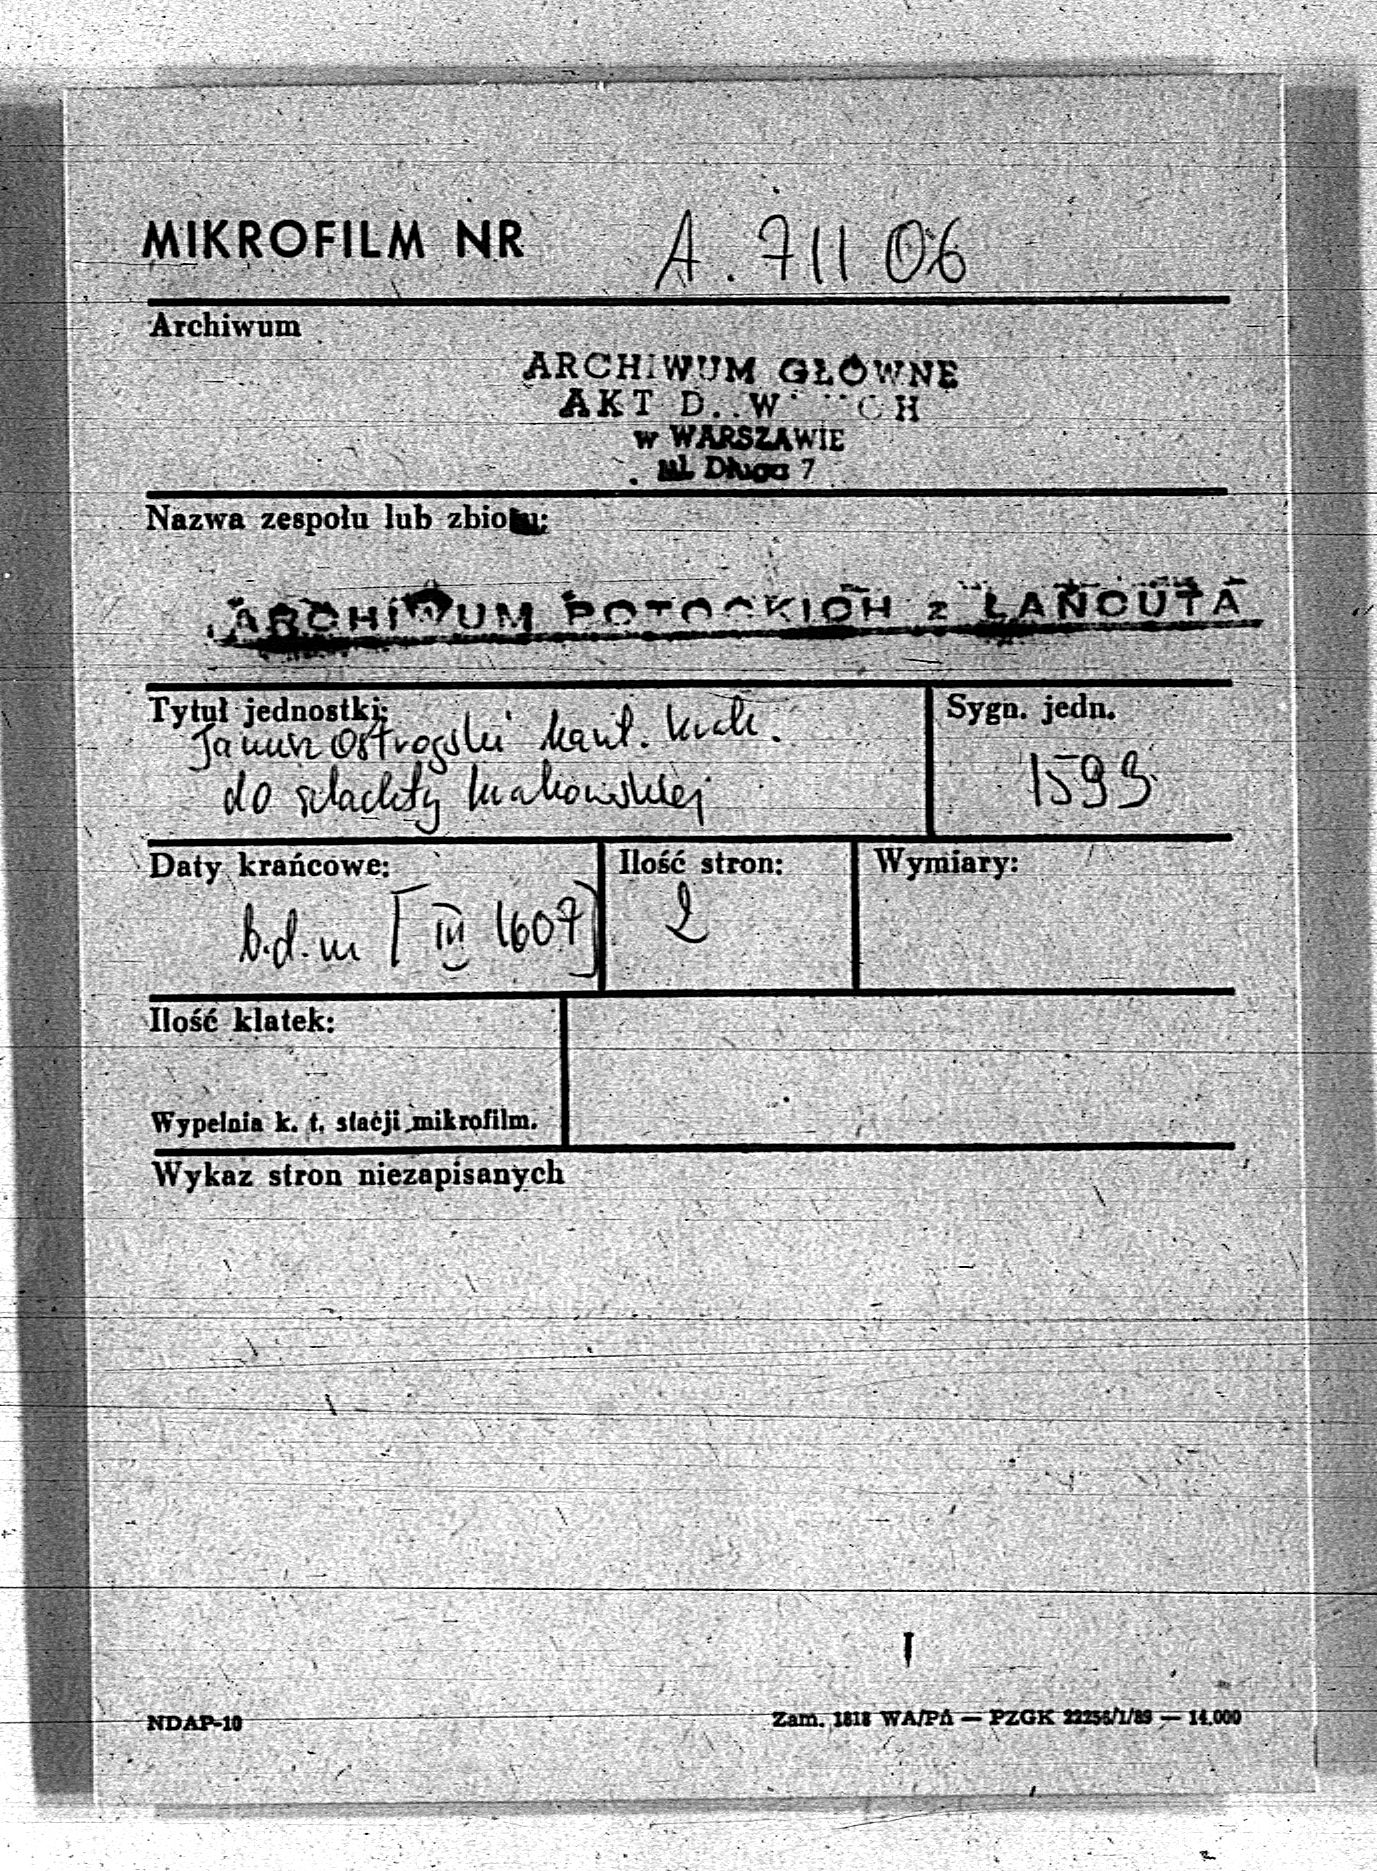 MIKROFILM NR A. 71106
Archiwum
ARCHIWUM GŁÓWNE
AKT D..W CH
w WARSZAWIE
ul. Długa 7
Nazwa zespołu lub zbioru:
ARCHIWUM POTOCKICH z ŁAŃCUTA
Tytuł jednostki: Sygn. jedn.
Janusz Ostrogski kaszt. krak.
do szlachty krakowskiej 1593
Daty krańcowe: Ilość stron: Wymiary:
b.d.m [III 1607] 2
Ilość klatek:
Wypełnia k. t. stacji mikrofilm.
Wykaz stron niezapisanych
NDAP-10 Zam. 1818 WA/PA — PZGK 22256/1/89 — 14.000